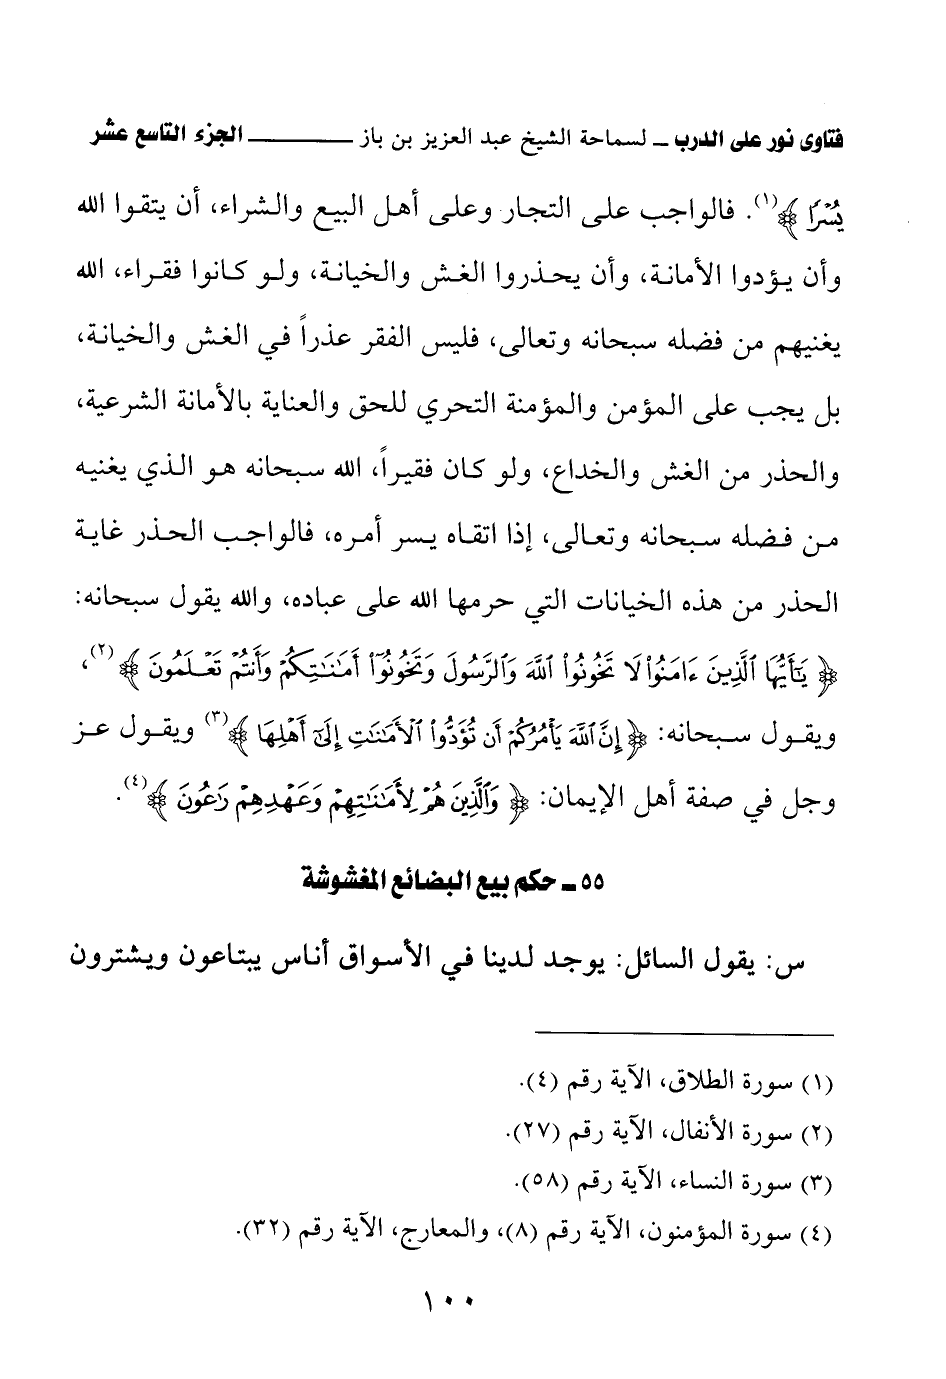 فتاوى نور على الدرب ـ لسماحة الشيخ عبد العزيز بن باز ــــــــــ الجزء التاسع عشر
يُسْرًا ﴾(١). فالواجب على التجار وعلى أهل البيع والشراء، أن يتقوا الله
وأن يؤدوا الأمانة، وأن يحذروا الغش والخيانة، ولو كانوا فقراء، الله
يغنيهم من فضله سبحانه وتعالى، فليس الفقر عذراً في الغش والخيانة،
بل يجب على المؤمن والمؤمنة التحري للحق والعناية بالأمانة الشرعية،
والحذر من الغش والخداع، ولو كان فقيراً، الله سبحانه هو الذي يغنيه
من فضله سبحانه وتعالى، إذا اتقاه يسر أمره، فالواجب الحذر غاية
الحذر من هذه الخيانات التي حرمها الله على عباده، والله يقول سبحانه:
﴿ يَٰٓأَيُّهَا ٱلَّذِينَ ءَامَنُوا۟ لَا تَخُونُوا۟ ٱللَّهَ وَٱلرَّسُولَ وَتَخُونُوٓا۟ أَمَٰنَٰتِكُمْ وَأَنتُمْ تَعْلَمُونَ ﴾(٢)،
ويقول سبحانه: ﴿ إِنَّ ٱللَّهَ يَأْمُرُكُمْ أَن تُؤَدُّوا۟ ٱلْأَمَٰنَٰتِ إِلَىٰٓ أَهْلِهَا ﴾(٣) ويقول عز
وجل في صفة أهل الإيمان: ﴿ وَٱلَّذِينَ هُمْ لِأَمَٰنَٰتِهِمْ وَعَهْدِهِمْ رَٰعُونَ ﴾(٤).
٥٥ ـ حكم بيع البضائع المغشوشة
س: يقول السائل: يوجد لدينا في الأسواق أناس يبتاعون ويشترون
(١) سورة الطلاق، الآية رقم (٤).
(٢) سورة الأنفال، الآية رقم (٢٧).
(٣) سورة النساء، الآية رقم (٥٨).
(٤) سورة المؤمنون، الآية رقم (٨)، والمعارج، الآية رقم (٣٢).
١٠٠